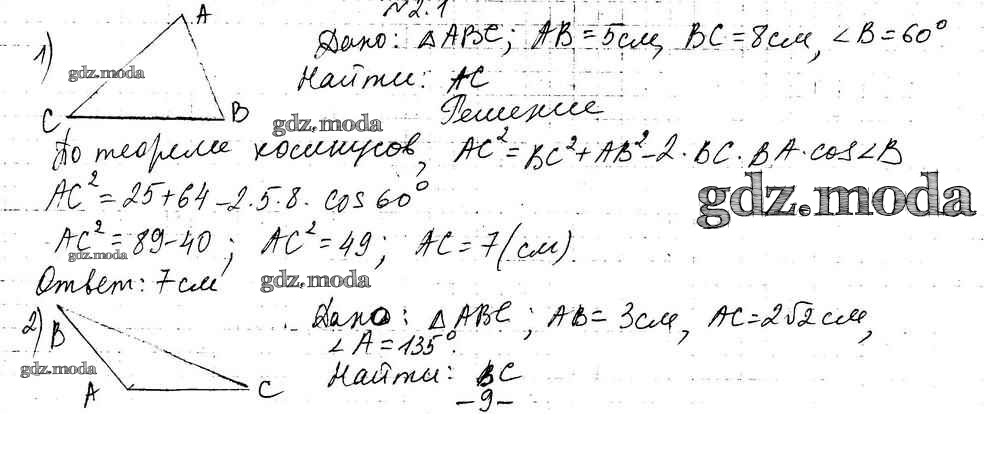 №2.1
1) A Дано: △ABC; AB=5см, BC=8см, ∠B=60°
gdz.moda Найти: AC
C B gdz.moda Решение
По теореме косинусов, AC²=BC²+AB²-2·BC·BA·cos∠B
AC²=25+64-2·5·8·cos60° gdz.moda
AC²=89-40; AC²=49; AC=7(см).
gdz.moda
Ответ: 7см gdz.moda
2) B Дано: △ABC; AB=3см, AC=2√2см,
∠A=135°.
gdz.moda Найти: BC
A C
-9-